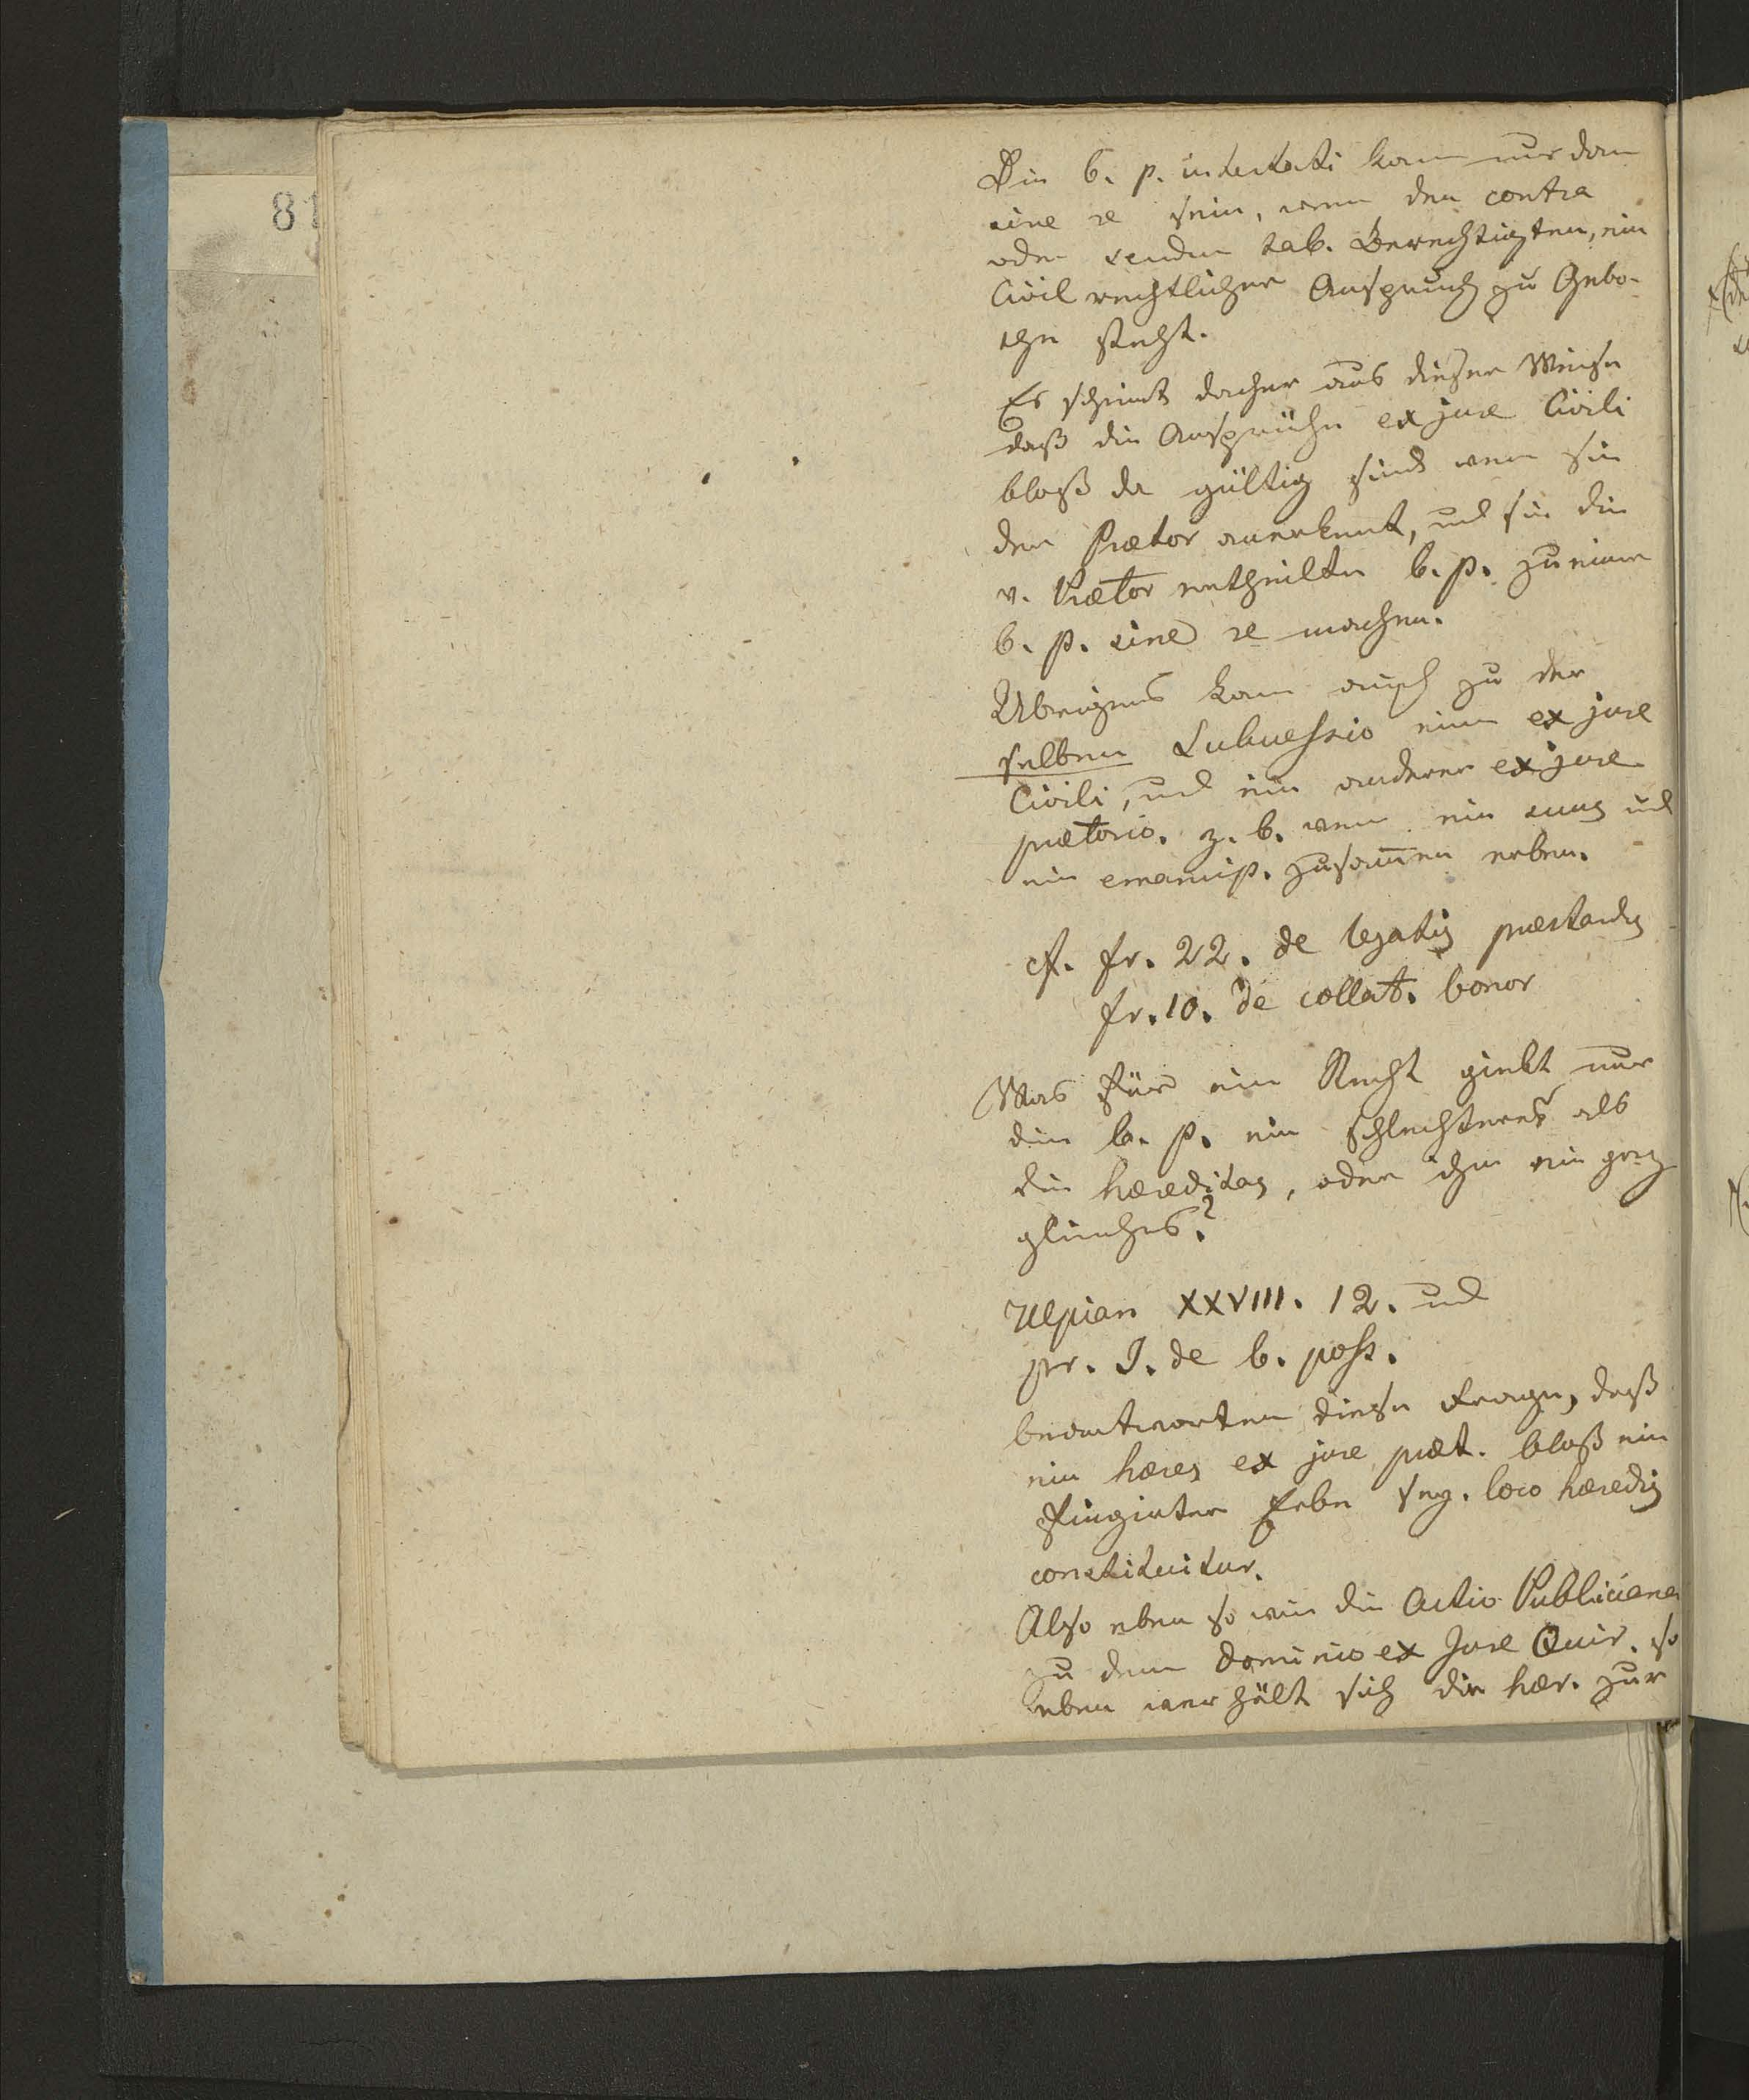 81
Die b. p. intestati kann nur dann
sine re sein, wenn den contra
oder secundum tab. Berechtigten, ein
Civil rechtlicher Anspruch zu Gebo-
the steht.
Es scheint daher aus dieser Weise
daß die Ansprüche ex jure Civili
bloß da gültig sind wenn sie
der Prætor anerkennt, und sie die
v. Prætor ertheilte b. p. zu einer
b. p. sine re machen.
Ubrigens kann auch zu der
selben Successio einer ex jure
Civili, und ein anderer ex jure
prætorio. z. b. wenn ein suus und
ein emancip. zusammen erben.
cf. fr. 22. de legatis præstandis
fr. 10. de collat. bonor
Was für ein Recht giebt nur
die b. p. ein schlechteres als
die hæreditas, oder ihr ein ganz
gleiches?
Ulpian XXVIII. 12. und
pr. I. de b. poss.
beantworten diese Frage, daß
ein hæres ex jure præt. bloß ein
fingirter Erbe sey. loco hæredis
constituitur.
Also eben so wie die Actio Publiciana
zu dem dominio ex Jure Quir. so
eben verhält sich die hær. zur